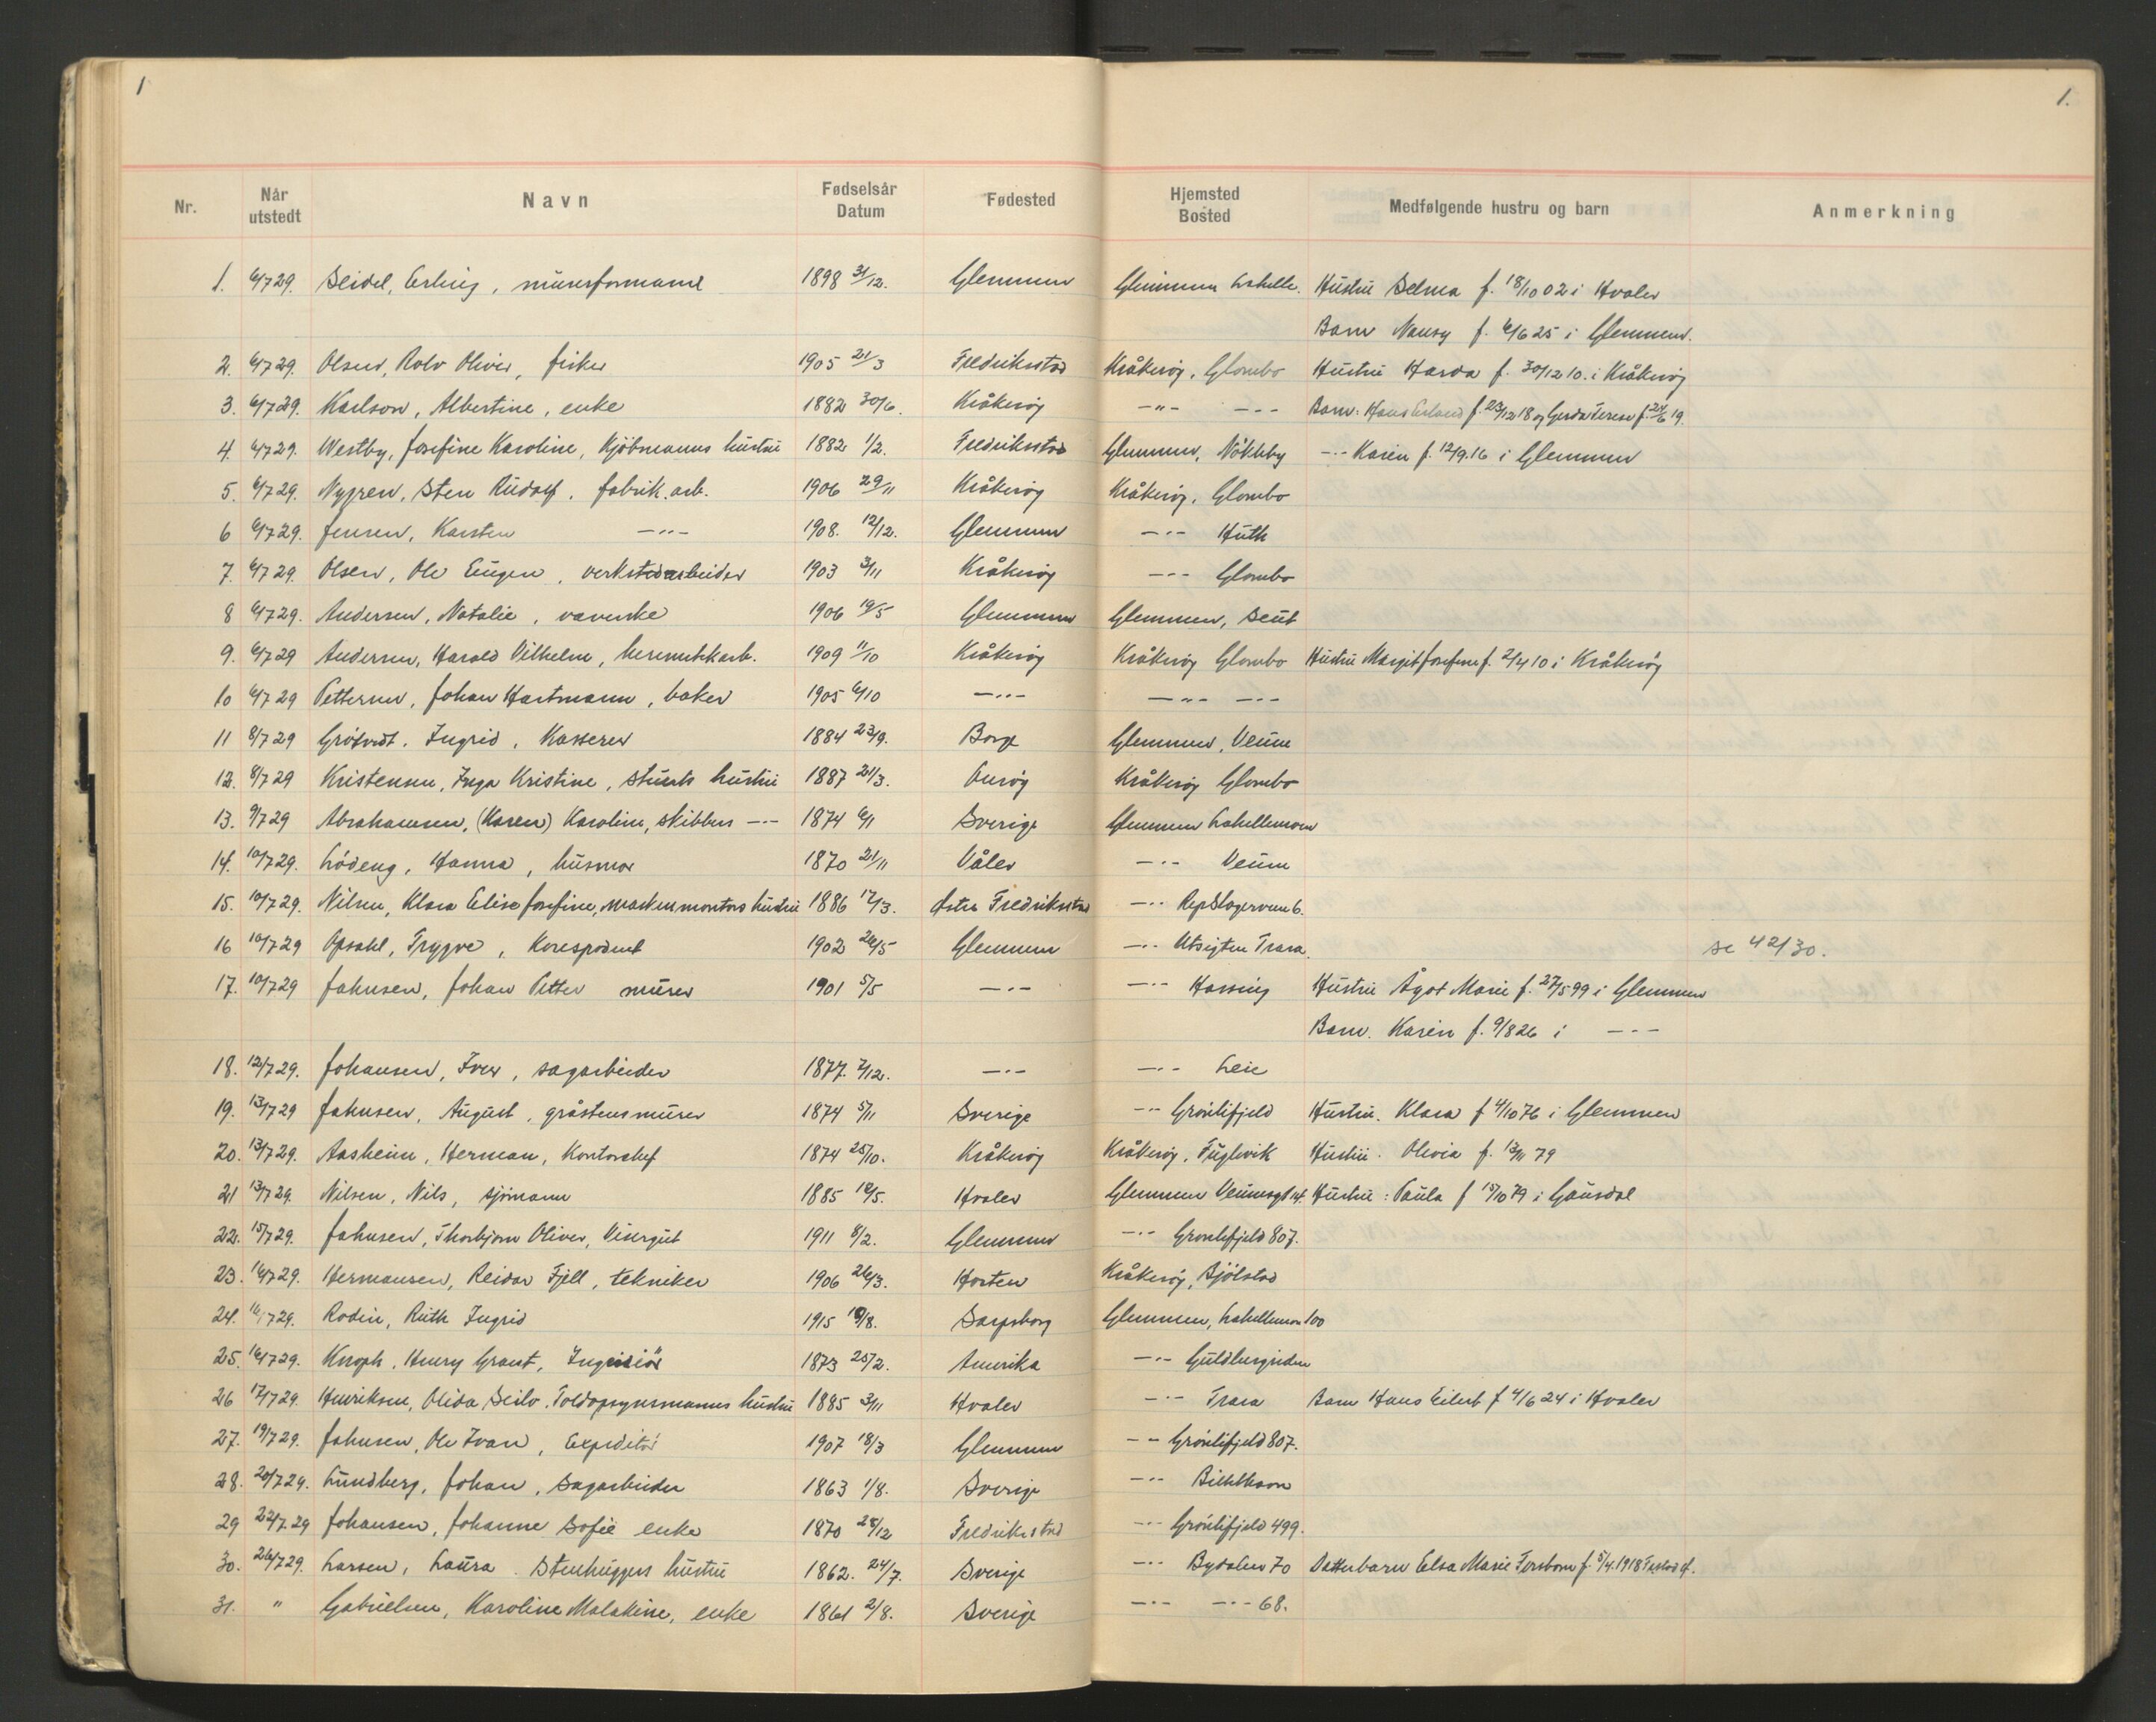 1
1.
Nr. Når utstedt Navn Fødselsår Datum Fødested Hjemsted Bosted Medfølgende hustru og barn Anmerkning
1. 6/7 29. Seidel, Erling, murerformann 1898 31/12. Glemmen Glemmen Lahelle. Hustru Selma f. 18/10 02 i Hvaler
Barn Nansy f. 6/6 25 i Glemmen.
2. 6/7 29. Olsen, Rolv Oliver, fisker 1905 21/3 Fredrikstad Kråkerøy, Glombo Hustru Harda f. 30/12 10. i Kråkerøy
3. 6/7 29. Karlson, Albertine, enke 1882 30/6. Kråkerøy -"- -"- Barn: Hans Erland f. 23/12 18 og Gerda Terese f. 24/6 19.
4. 6/7 29. Westby, Josefine Karoline, Kjøbmanns hustru 1882 1/2. Fredrikstad Glemmen, Nøkleby -"- Karin f. 12/9.16 i Glemmen
5. 6/7 29. Nygren, Sten Rudolf, fabrik.arb. 1906 29/11 Kråkerøy Kråkerøy, Glombo
6 6/7 29. Jensen, Karsten -"- 1908. 12/12. Glemmen -"- Huth
7. 6/7 29. Olsen, Ole Eugen, verkstedarbeider 1903 3/11 Kråkerøy -"- Glombo
8 6/7 29. Andersen, Natalie, 1906 19/5 Glemmen Glemmen, Seut
9. 6/7 29 Andersen, Harald Vilhelm, hermetikkarb. 1909 11/10 Kråkerøy Kråkerøy Glombo Hustru Margit Josefine f. 2/4 10 i Kråkerøy
10 6/7 29 Pettersen, Johan Hartmann, baker 1905 6/10 -"- -"- -"-
11 8/7 29 Grötvedt, Ingrid, Kasserer 1884 23/9. Borge Glemmen, Veum
12. 8/7 29 Kristensen, Inga Kristine, stuerts hustru 1887 21/3. Onsøy Kråkerøy Glombo
13. 9/7 29 Abrahamsen, (Karen) Karoline, skibbers -"- 1874 6/1 Sverige Glemmen Lahellemoen
14. 10/7 29. Lödeng, Hanna, husmor 1870 21/11 Våler -"- Veum
15. 10/7 29. Nilsen, Klara Elise Josefine, maskinmontørs hustru 1886 17/3. Østre Fredrikstad -"- Repslagerveien 6.
16 10/7 29 Opsahl, Trygve, Korespodent 1902 26/5 Glemmen -"- Utsigten Trara. se 42/30.
17. 10/7 29 Johnsen, Johan Petter murer 1901 5/5 -"- -"- Hassing Hustru Ågot Marie f. 27/5 99 i Glemmen
Barn. Karin f. 9/8 26 i -"-
18. 12/7 29. Johansen, Iver, sagarbeider 1877. 7/12. -"- -"- Leie
19. 13/7 29 Johnsen, August, gråstensmurer 1874 5/11 Sverige -"- Grønlifjeld Hustru. Klara f 4/10 76 i Glemmen
20. 13/7 29. Aasheim, Herman, Kontorchef 1874 25/10. Kråkerøy Kråkerøy, Fuglevik Hustru. Olivia f. 13/11 79
21 13/7 29. Nilsen, Nils, sjømann 1885 18/5. Hvaler Glemmen Veumsgt 14. Hustru: Paula f 15/10 79 i Gausdal
22. 15/7 29. Johnsen, Thorbjørn Oliver, Visergut 1911 8/2. Glemmen -"- Grønlifjeld 807.
23. 16/7 29. Hermansen, Reidar Fjell, tekniker 1906 26/3. Horten Kråkerøy, Bjölstad
24. 16/7 29. Rodin, Ruth Ingrid 1915 18/8. Sarpsborg Glemmen, Lahellemoen 100
25. 16/7 29. Knoph, Henry Grant, Ingeniør 1873 25/2. Amerika -"- Guldbergsiden
26 17/7 29. Henriksen, Olida Seilo. Toldopsynsmanns hustru 1885 3/11 Hvaler -"- Trara Barn Hans Eilert f 4/6 24 i Hvaler
27. 19/7 29. Johnsen, Ole Ivan, Expeditör 1907 18/3 Glemmen -"- Grønlifjeld 807.
28. 20/7 29. Lundberg, Johan, Sagarbeider 1863 1/8. Sverige -"-
29 22/7.29 Johansen, Johanne Sofie enke 1870 28/12 Fredrikstad -"- Grønlifjeld 499.
30. 26/7 29. Larsen, Laura. Stenhuggers hustru 1862. 24/7. Sverige -"- Bydalen 70 Datterbarn Elsa Marie f. 5/4.1918
31. " Gabrielsen, Karoline Malakine, enke 1861 2/8. Sverige -"- -"- 68.